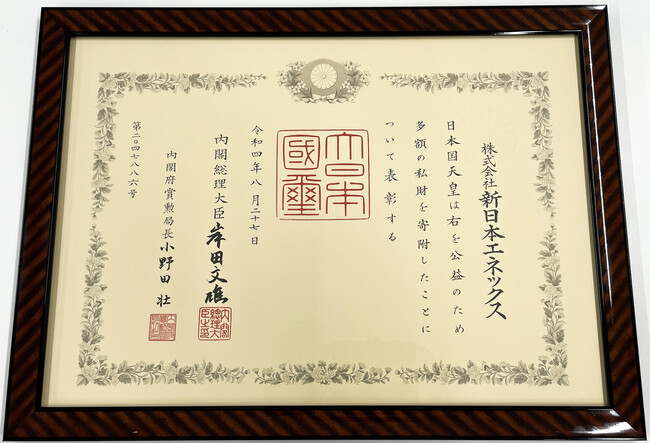 株式会社新日本エネックス
日本国天皇は右を公益のため
多額の私財を寄附したことに
ついて表彰する
大日本
國璽
令和四年八月二十七日
内閣総理大臣 岸田文雄
内閣総理大臣之印
内閣府賞勲局長 小野田 壮
第二〇四七八八六号